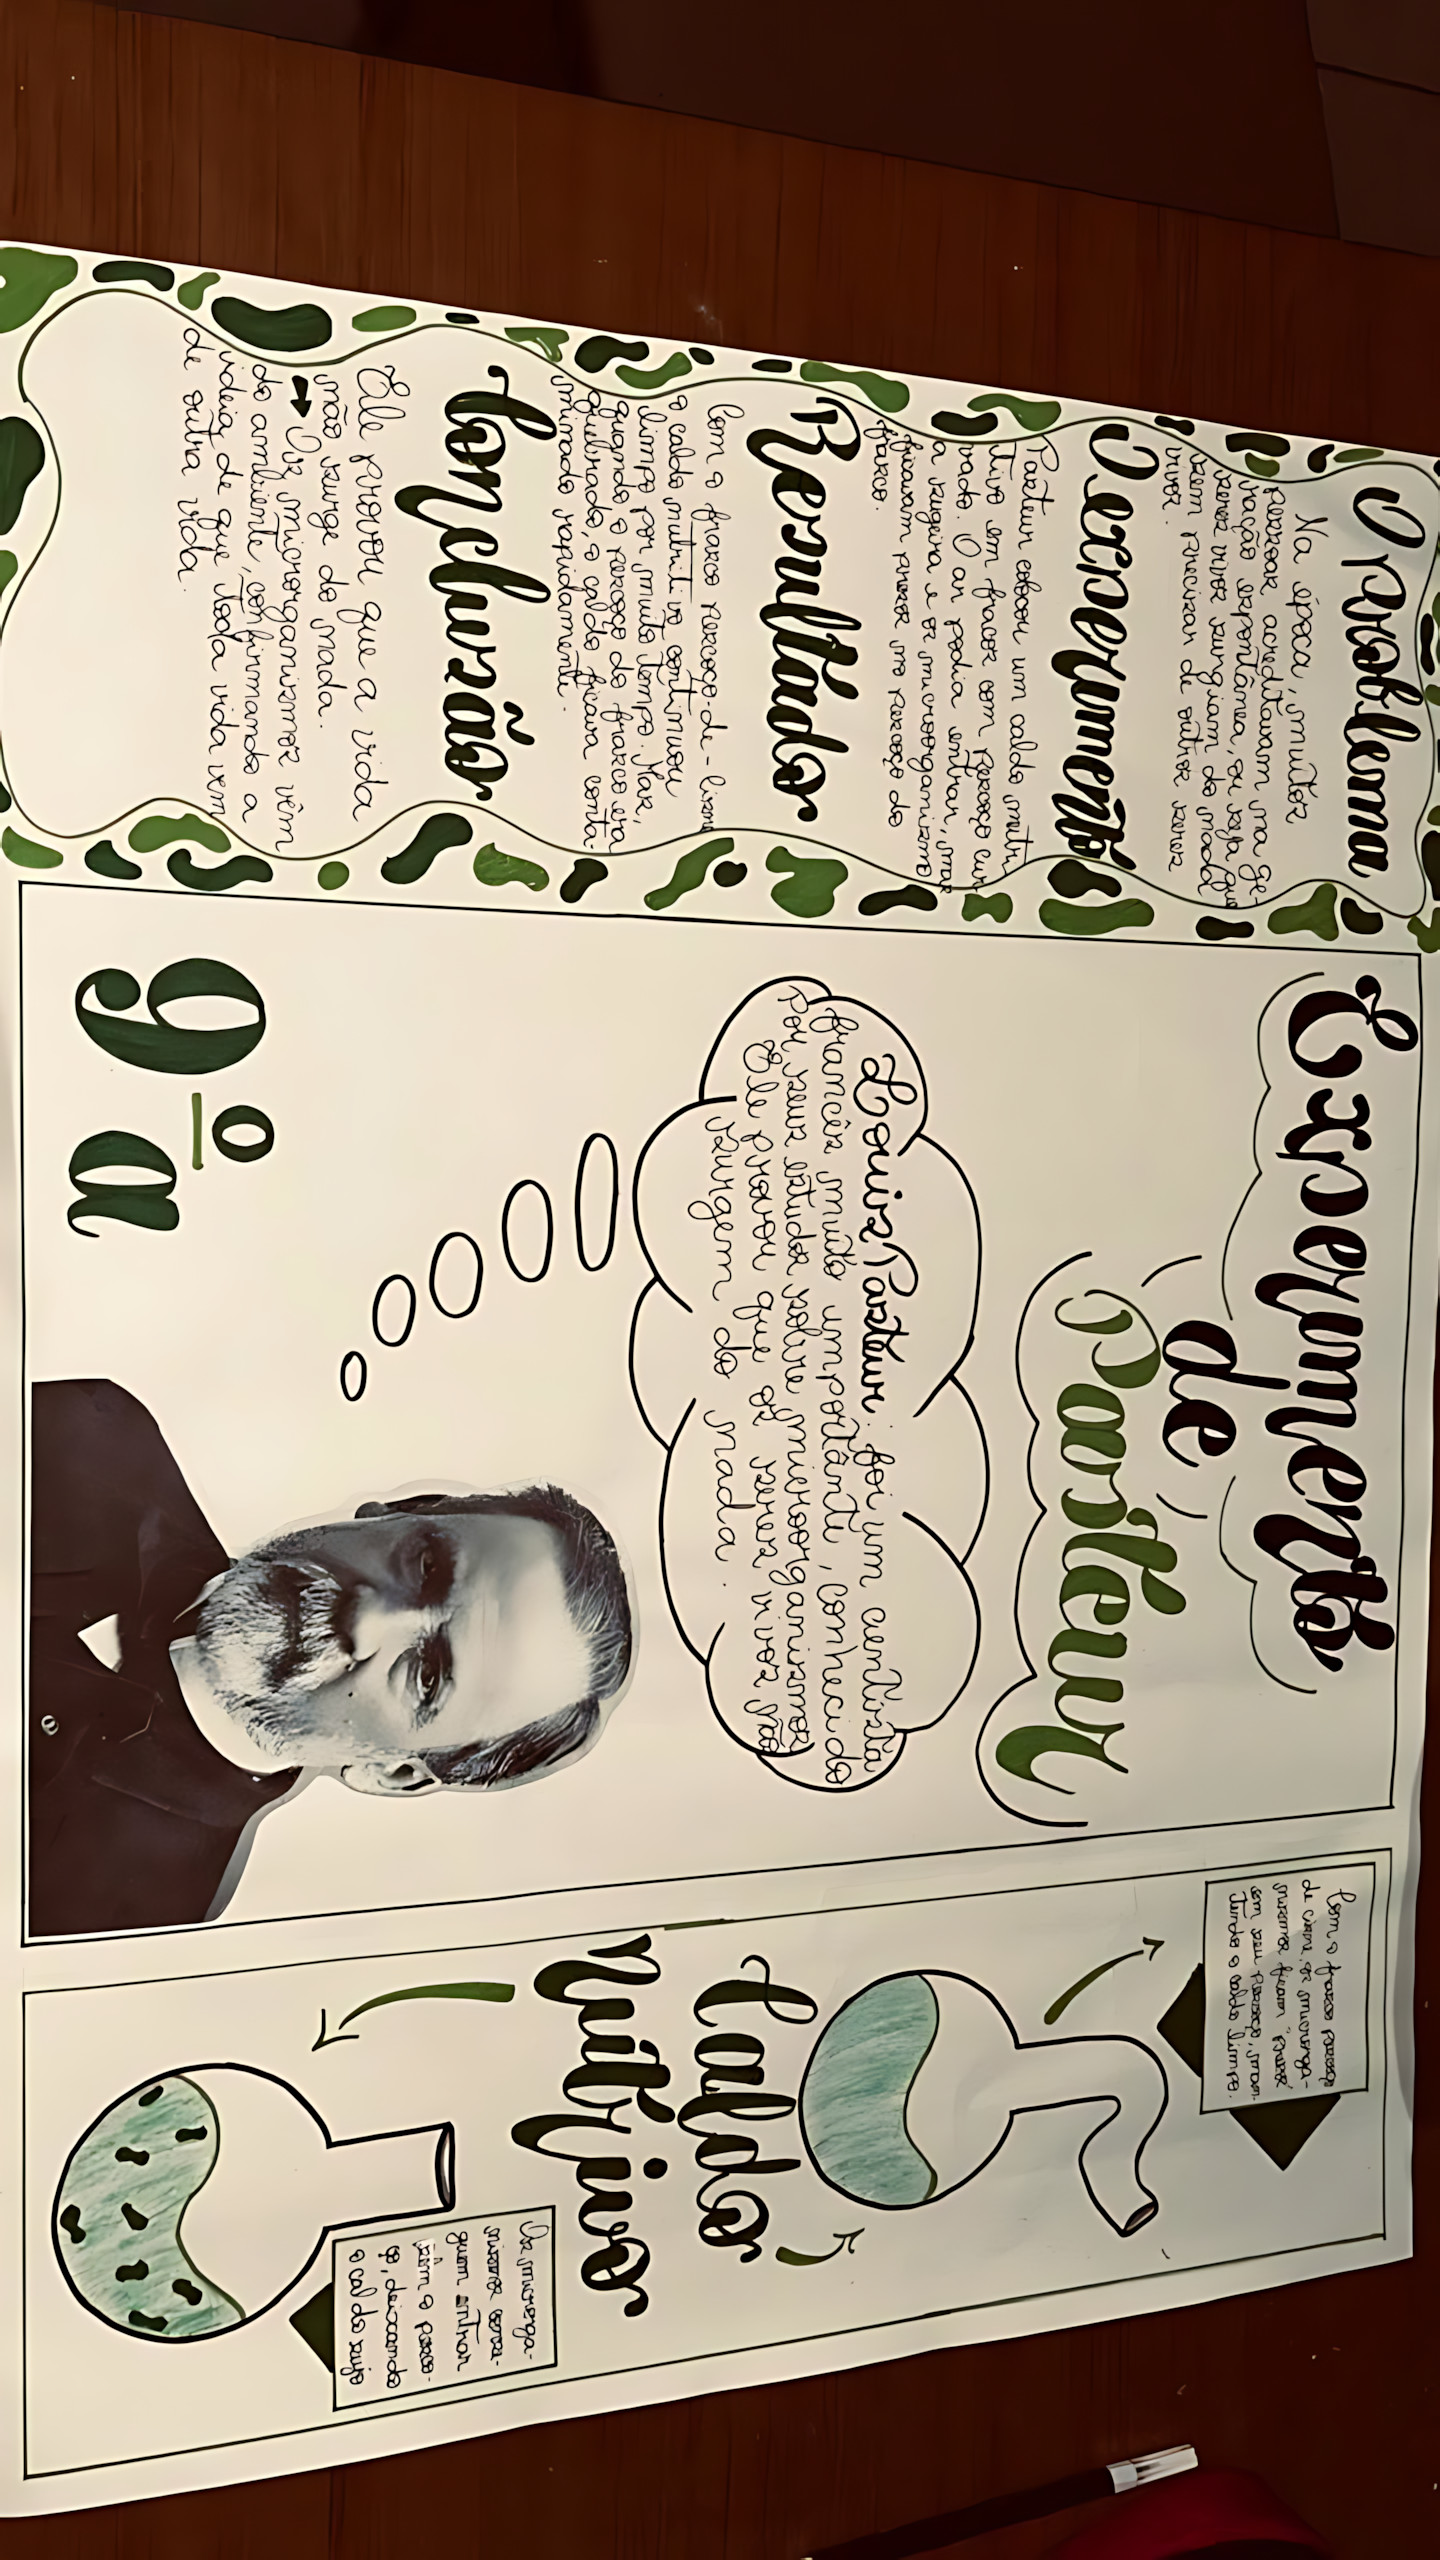 O problema
Na época, muitos
pessoas acreditavam na ge-
ração espontânea, ou seja que
seres vivos surgiam do nada
sem precisar de outros seres
vivos.
O experimento
Pasteur colocou um caldo nutri
tivo em frascos com pescoço cur-
vado. O ar podia entrar, mas
a sugeira e os microorganismo
ficavam presos no pescoço do
frasco.
Resultados
Com o frasco pescoço-de-cisne
o caldo nutritivo continuou
limpo por muito tempo. Mas,
quando o pescoço do frasco era
quebrado, o caldo ficava conta-
minado rapidamente.
Conclusão
Ele provou que a vida
não surge do nada.
➡ Os microrganismos vêm
do ambiente, confirmando a
ideia de que toda vida vem
de outra vida.
Experimento
de
Pasteur
Louis Pasteur: foi um centista
francês muito importante, conhecido
por seus estudos sobre microorganismos
Ele provou que os seres vivos não
surgem do nada.
9º a
Com o frasco pescoço
de cisne, os microrga-
nismos ficam "presos
em seu pescoço, man-
tendo o caldo limpo.
Caldo
nutritivo
Os microrga-
nismos conse-
guem entrar
pelo o pesco-
ço, deixando
o caldo sujo